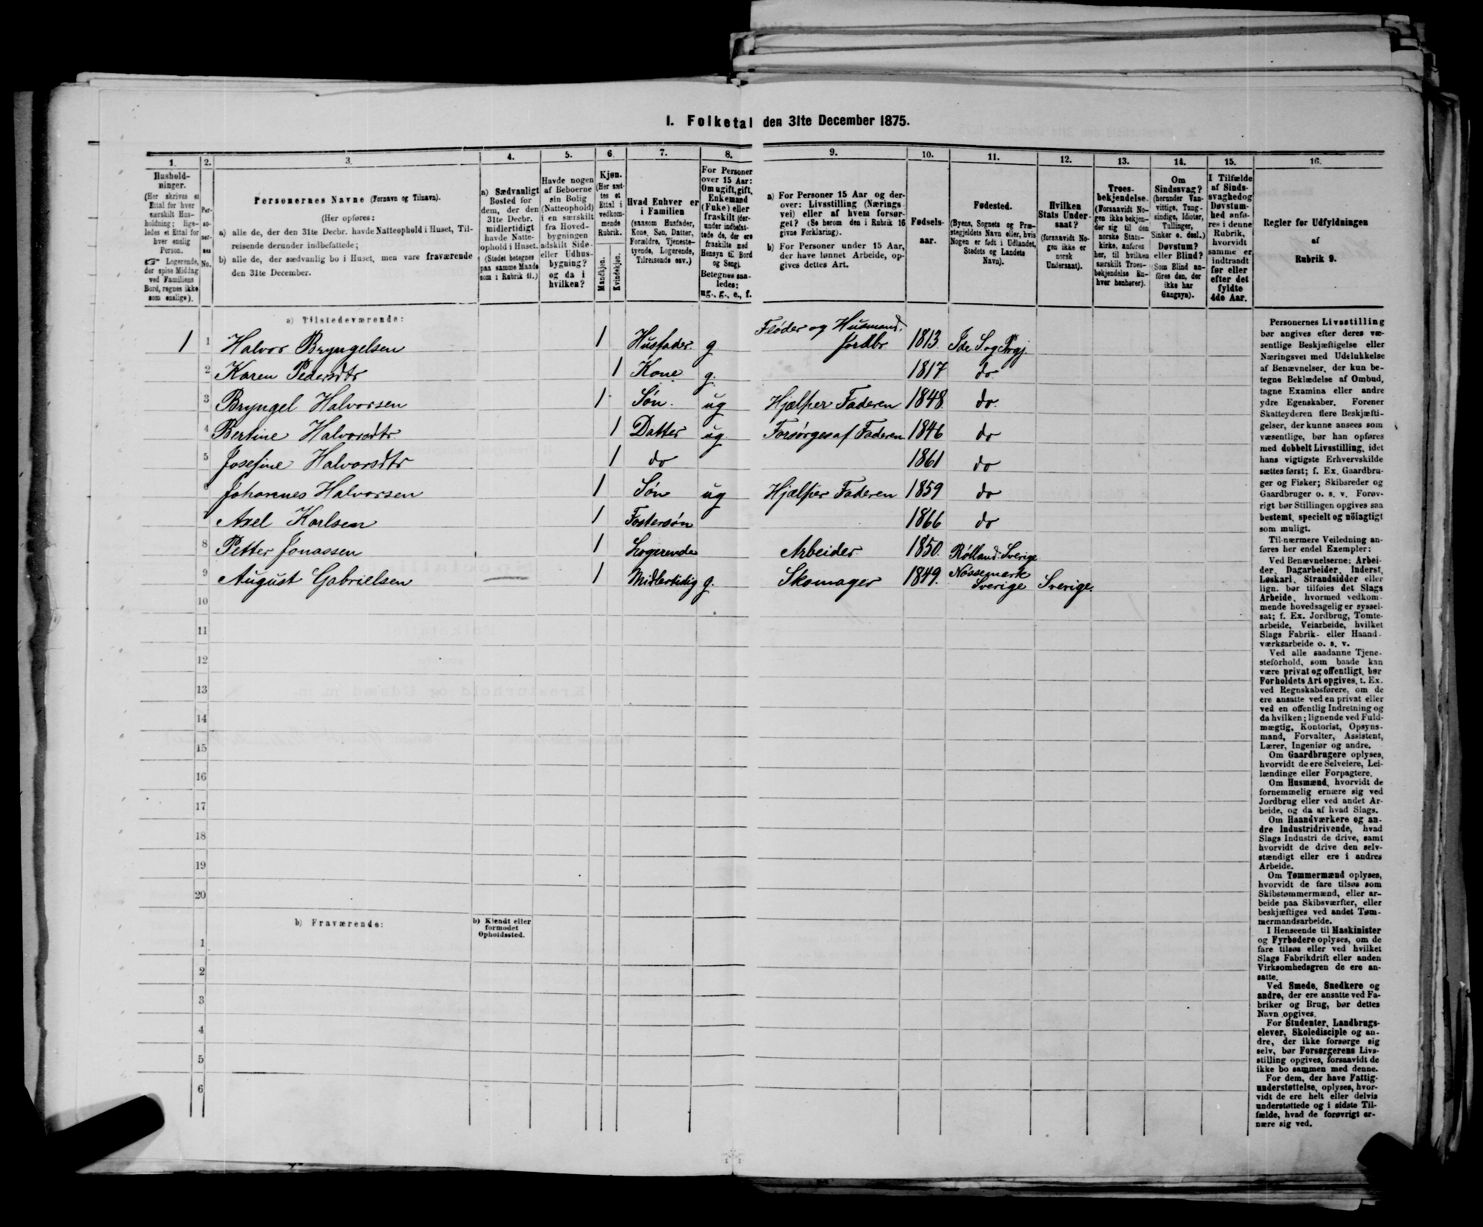 I. Folketal den 31te December 1875.
1. 2. 3. 4. 5. 6. 7. 8. 9. 10. 11. 12. 13. 14. 15. 16.
Husholdninger.
(Her skrives et Ettal for hver særskilt Husholdning; ligeledes et Ettal for hver enslig Person.
☞ Logerende, der spise Middag ved Familiens Bord, regnes ikke som enslige).
Personernes Navne (Fornavn og Tilnavn).
(Her opføres:
a) alle de, der den 31te Decbr. havde Natteophold i Huset, Tilreisende derunder indbefattede;
b) alle de, der sædvanlig bo i Huset, men vare fraværende den 31te December.
a) Sædvanligt Bosted for dem, der den 31te Decbr. midlertidigt havde Natteophold i Huset.
(Stedet betegnes paa samme Maade som i Rubrik 11.)
Havde nogen af Beboerne sin Bolig (Natteophold) i en særskilt fra Hovedbygningen adskilt Side- eller Udhusbygning? og da i hvilken?
Kjøn.
(Her sættes et Ettal i vedkommende Rubrik.
Mandkjøn.
Kvindekjøn.
Hvad Enhver er i Familien
(saasom Husfader, Kone, Søn, Datter, Forældre, Tjenestetyende, Logerende, Tilreisende osv.)
For Personer over 15 Aar: Om ugift, gift, Enkemand (Fuke) eller fraskilt
Betegnes saaledes: ug., g., e., f.
a) For Personer 15 Aar og derover: Livsstilling (Næringsvei) eller af hvem forsørget? (Se herom den i Rubrik 16 givne Forklaring).
b) For Personer under 15 Aar, der have lønnet Arbeide, opgives dettes Art.
Fødselsaar.
Fødested.
(Byens, Sognets og Præstegjeldets Navn eller, hvis Nogen er født i Udlandet, Stedets og Landets Navn).
Hvilken Stats Undersaat?
(foraavidt Nogen ikke er norsk Undersaat).
Troesbekjendelse.
(Forsaavidt Nogen ikke bekjender sig til den norske Statskirke, anføres her, til hvilken særskilt Troesbekjendelse Enhver henhører).
Om Sindssvag?
(herunder Vanvittige, Tungsindige, Idioter, Tullinger, Sinker o. desl.)
Døvstum? eller Blind?
(Som Blind anføres den, der ikke har Gangsyn).
I Tilfælde af Sindssvaghed og Døvstumhed anføres i denne Rubrik, hvorvidt samme er indtraadt før eller efter det fyldte 4de Aar.
Regler for Udfyldningen af Rubrik 9.
a) Tilstedeværende:
1 1 Halvor Bryngelsen 1 Husfader g Fløder og Husmand. Jordbr 1813 Ide S og Prgj
2 Karen Pedersdtr 1 Kone g. 1817 do
3 Bryngel Halvorsen 1 Søn. ug Hjælper Faderen 1848 do.
4 Bertine Halvorsdtr 1 Datter ug. Forsørges af Faderen 1846 do
5 Josefine Halvorsdtr 1 do 1861 do
6 Johannes Halvorsen 1 Søn ug Hjælper Faderen 1859 do
Axel Karlsen 1 Fostersøn 1866 do
8 Petter Jonassen 1 Logerende Arbeider 1850 Rølland. Sverige
9 August Gabrielsen 1 Midlertidig g. Skomager 1849. Nössemark Sverige Sverige.
10
11
12
13
14
15
16
17
18
19
20
b) Fraværende:
b) Kjendt eller formodet Opholdssted.
1
2
3
4
5
6
Personernes Livsstilling
bør angives efter deres væ-
sentlige Beskjæftigelse eller
Næringsvei med Udelukkelse
af Benævnelser, der kun be-
tegne Beklædelse af Ombud,
tagne Examina eller andre
ydre Egenskaber. Forener
Skatteyderen flere Beskjæfti-
gelser, der kunne ansees som
væsentlige, bør han opføres
med dobbelt Livsstilling, idet
hans vigtigste Erhvervskilde
sættes først; f. Ex. Gaardbru-
ger og Fisker; Skibsreder og
Gaardbruger o. s. v. Forøv-
rigt bør Stillingen opgives saa
bestemt, specielt og nøiagtigt
som muligt.
Til nærmere Veiledning an-
føres her endel Exempler:
Ved Benævnelserne: Arbei-
der, Dagarbeider, Inderst,
Løskarl, Strandsidder eller
lign. bør tilføies det Slags
Arbeide, hvormed vedkom-
mende hovedsagelig er syssel-
sat; f. Ex. Jordbrug, Tomte-
arbeide, Veiarbeide, hvilket
Slags Fabrik- eller Haand-
værksarbeide o. s. v.
Ved alle saadanne Tjene-
steforhold, som baade kan
være privat og offentligt, bør
Forholdets Art opgives, t. Ex.
ved Regnskabsførere, om de
ere ansatte ved en privat eller
ved en offentlig Indretning og
da hvilken; lignende ved Fuld-
mægtig, Kontorist, Opsyns-
mand, Forvalter, Assistent,
Lærer, Ingeniør og andre.
Om Gaardbrugere oplyses,
hvorvidt de ere Selveiere, Lei-
lændinge eller Forpagtere.
Om Husmænd, hvorvidt de
fornemmelig ernære sig ved
Jordbrug eller ved andet Ar-
beide, og da af hvad Slags.
Om Haandværkere og an-
dre Industridrivende, hvad
Slags Industri de drive, samt
hvorvidt de drive den selv-
stændigt eller ere i andres
Arbeide.
Om Tømmermænd oplyses,
hvorvidt de fare tilsøs som
Skibstømmermænd, eller ar-
beide paa Skibsværfter, eller
beskjæftiges ved andet Tøm-
mermandsarbeide.
I Henseende til Maskinister
og Fyrbødere oplyses, om de
fare tilsøs eller ved hvilket
Slags Fabrikdrift eller anden
Virksomhedsgren de ere an-
satte.
Ved Smede, Snedkere og
andre, der ere ansatte ved Fa-
briker og Brug, bør dettes
Navn opgives.
For Studenter, Landbrugs-
elever, Skoledisciple og an-
dre, der ikke forsørge sig
selv, bør Forsørgerens Livs-
stilling opgives, forsaavidt de
ikke bo sammen med denne.
For dem, der have Fattig-
understøttelse, oplyses, hvor-
vidt de ere helt eller delvis
understøttede og i sidste Til-
fælde, hvad de forøvrigt er-
nære sig ved.